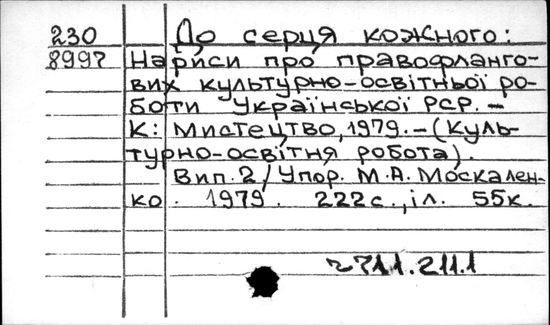 230 До серця кожного:
8997 Нариси про правофланго-
вих культурно-освітньої ро-
боти Української РСР. -
К: Мистецтво, 1979. - (Куль-
турно-освітня робота).
Вип. 2/Упор. М.А. Москален-
ко. 1979. 222с., іл. 55к.
2711.211.1